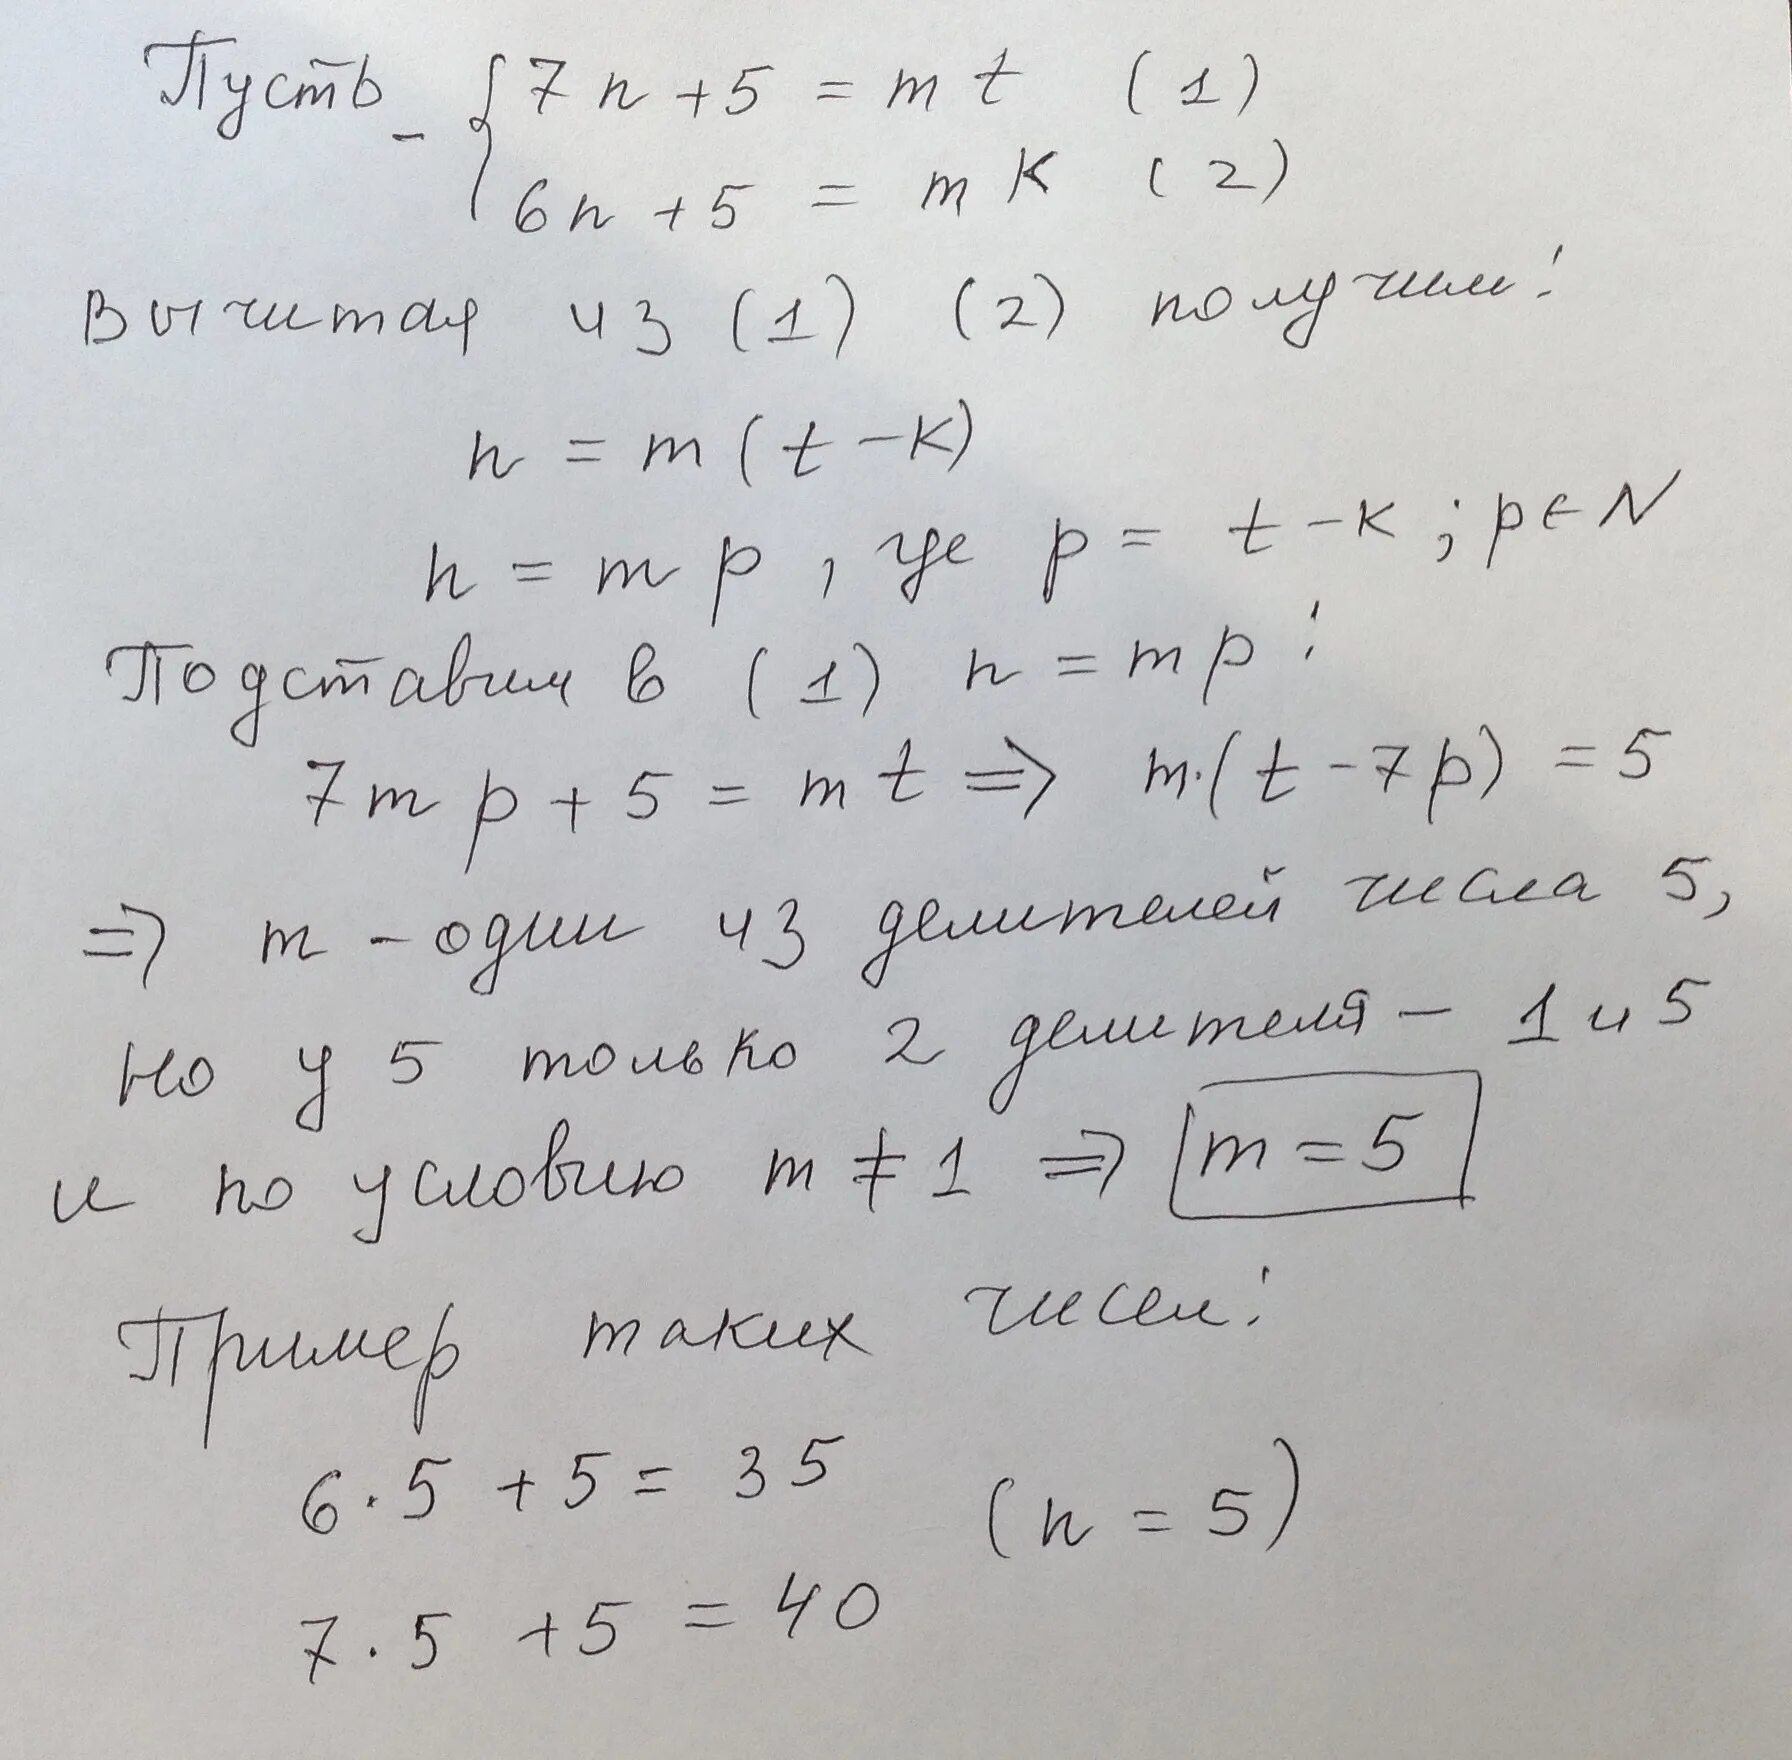 Пусть - { 7n + 5 = mt (1)
6n + 5 = mk (2)
Вычитая из (1) (2) получим:
n = m(t - k)
n = mp, где p = t - k; p ∈ N
Подставим в (1) n = mp:
7mp + 5 = mt => m·(t - 7p) = 5
=> m - один из делителей числа 5,
но у 5 только 2 делителя - 1 и 5
и по условию m ≠ 1 => m = 5
Пример таких чисел:
6·5 + 5 = 35 (n = 5)
7·5 + 5 = 40